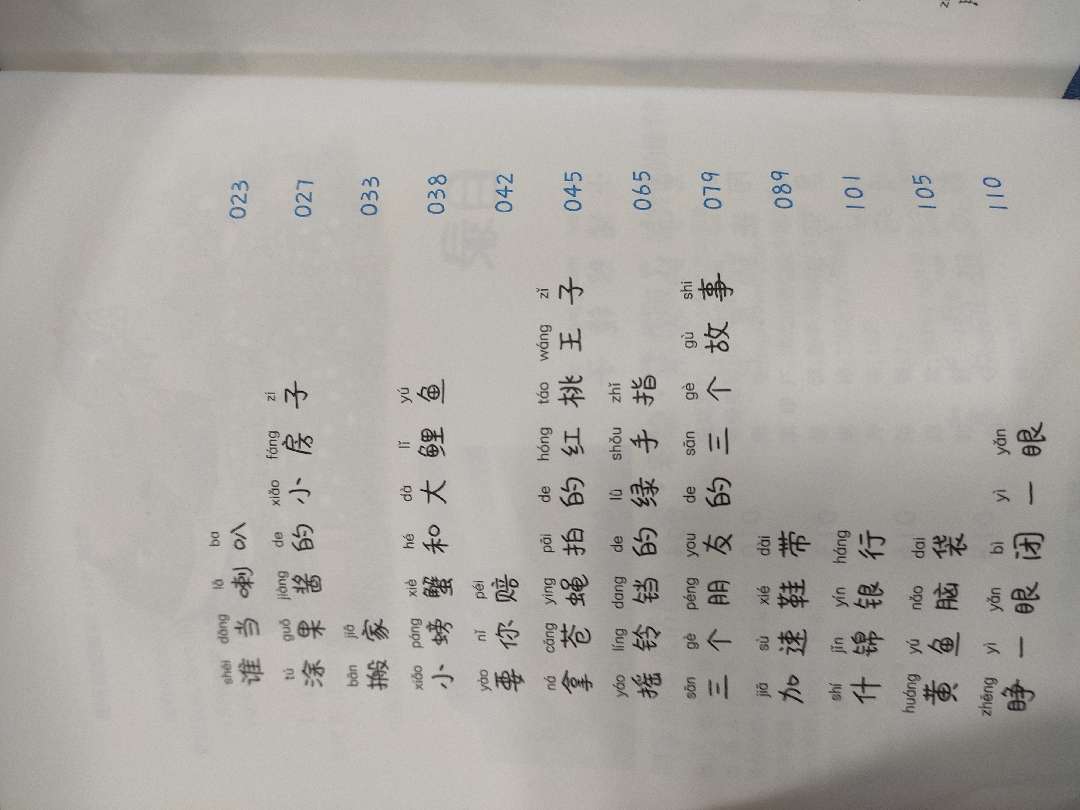 shéi dāng lǎ ba
谁当喇叭 023
tú guǒ jiàng de xiǎo fáng zi
涂果酱的小房子 027
bān jiā
搬家 033
xiǎo páng xiè hé dà lǐ yú
小螃蟹和大鲤鱼 038
yào nǐ péi
要你赔 042
ná cāng ying pāi de hóng táo wáng zǐ
拿苍蝇拍的红桃王子 045
yáo líng dang de lǜ shǒu zhǐ
摇铃铛的绿手指 065
sān gè péng you de sān gè gù shi
三个朋友的三个故事 079
jiā sù xié dài
加速鞋带 089
shí jǐn yín háng
什锦银行 101
huáng yú nǎo dai
黄鱼脑袋 105
zhēng yì yǎn bì yì yǎn
睁一眼闭一眼 110